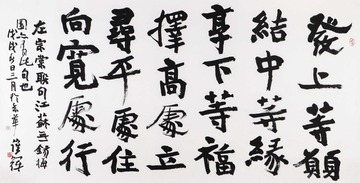 發上等願
結中等緣
享下等福
擇高處立
尋平處住
向寬處行
左宗棠聯句江蘇無錫梅
園此句也
戊戌日三月於京華